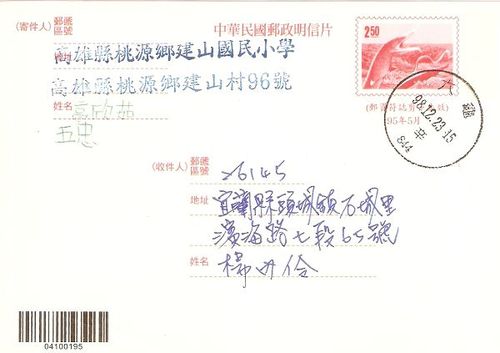 (寄件人) 郵遞區號
中華民國郵政明信片
高雄縣桃源鄉建山國民小學
高雄縣桃源鄉建山村96號
姓名
五忠
2.50
95年5月
98.12.23.15
辛
844
(收件人) 郵遞區號 26145
地址 宜蘭縣頭城鎮石城里
濱海路七段65號
姓名
04100195